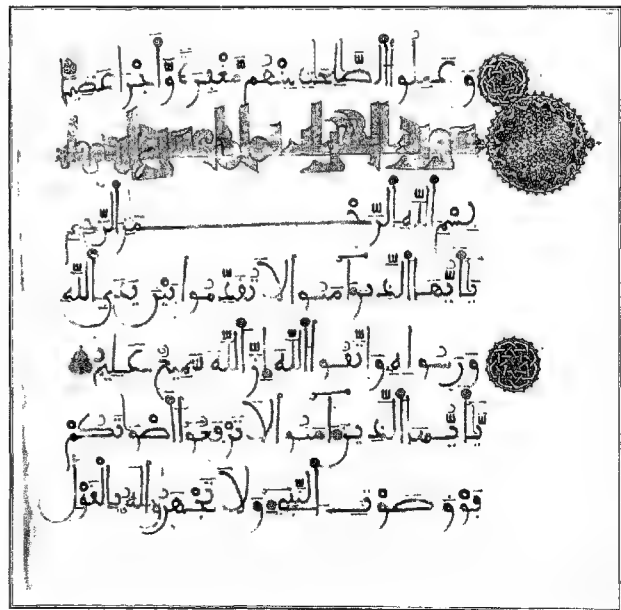 وَعَمِلُوا الصَّالِحَاتِ مِنْهُم مَّغْفِرَةً وَأَجْرًا عَظِيمًا
بِسْمِ اللَّهِ الرَّحْمَنِ الرَّحِيمِ
يَا أَيُّهَا الَّذِينَ آمَنُوا لَا تُقَدِّمُوا بَيْنَ يَدَيِ اللَّهِ
وَرَسُولِهِ وَاتَّقُوا اللَّهَ إِنَّ اللَّهَ سَمِيعٌ عَلِيمٌ
يَا أَيُّهَا الَّذِينَ آمَنُوا لَا تَرْفَعُوا أَصْوَاتَكُمْ
فَوْقَ صَوْتِ النَّبِيِّ وَلَا تَجْهَرُوا لَهُ بِالْقَوْلِ